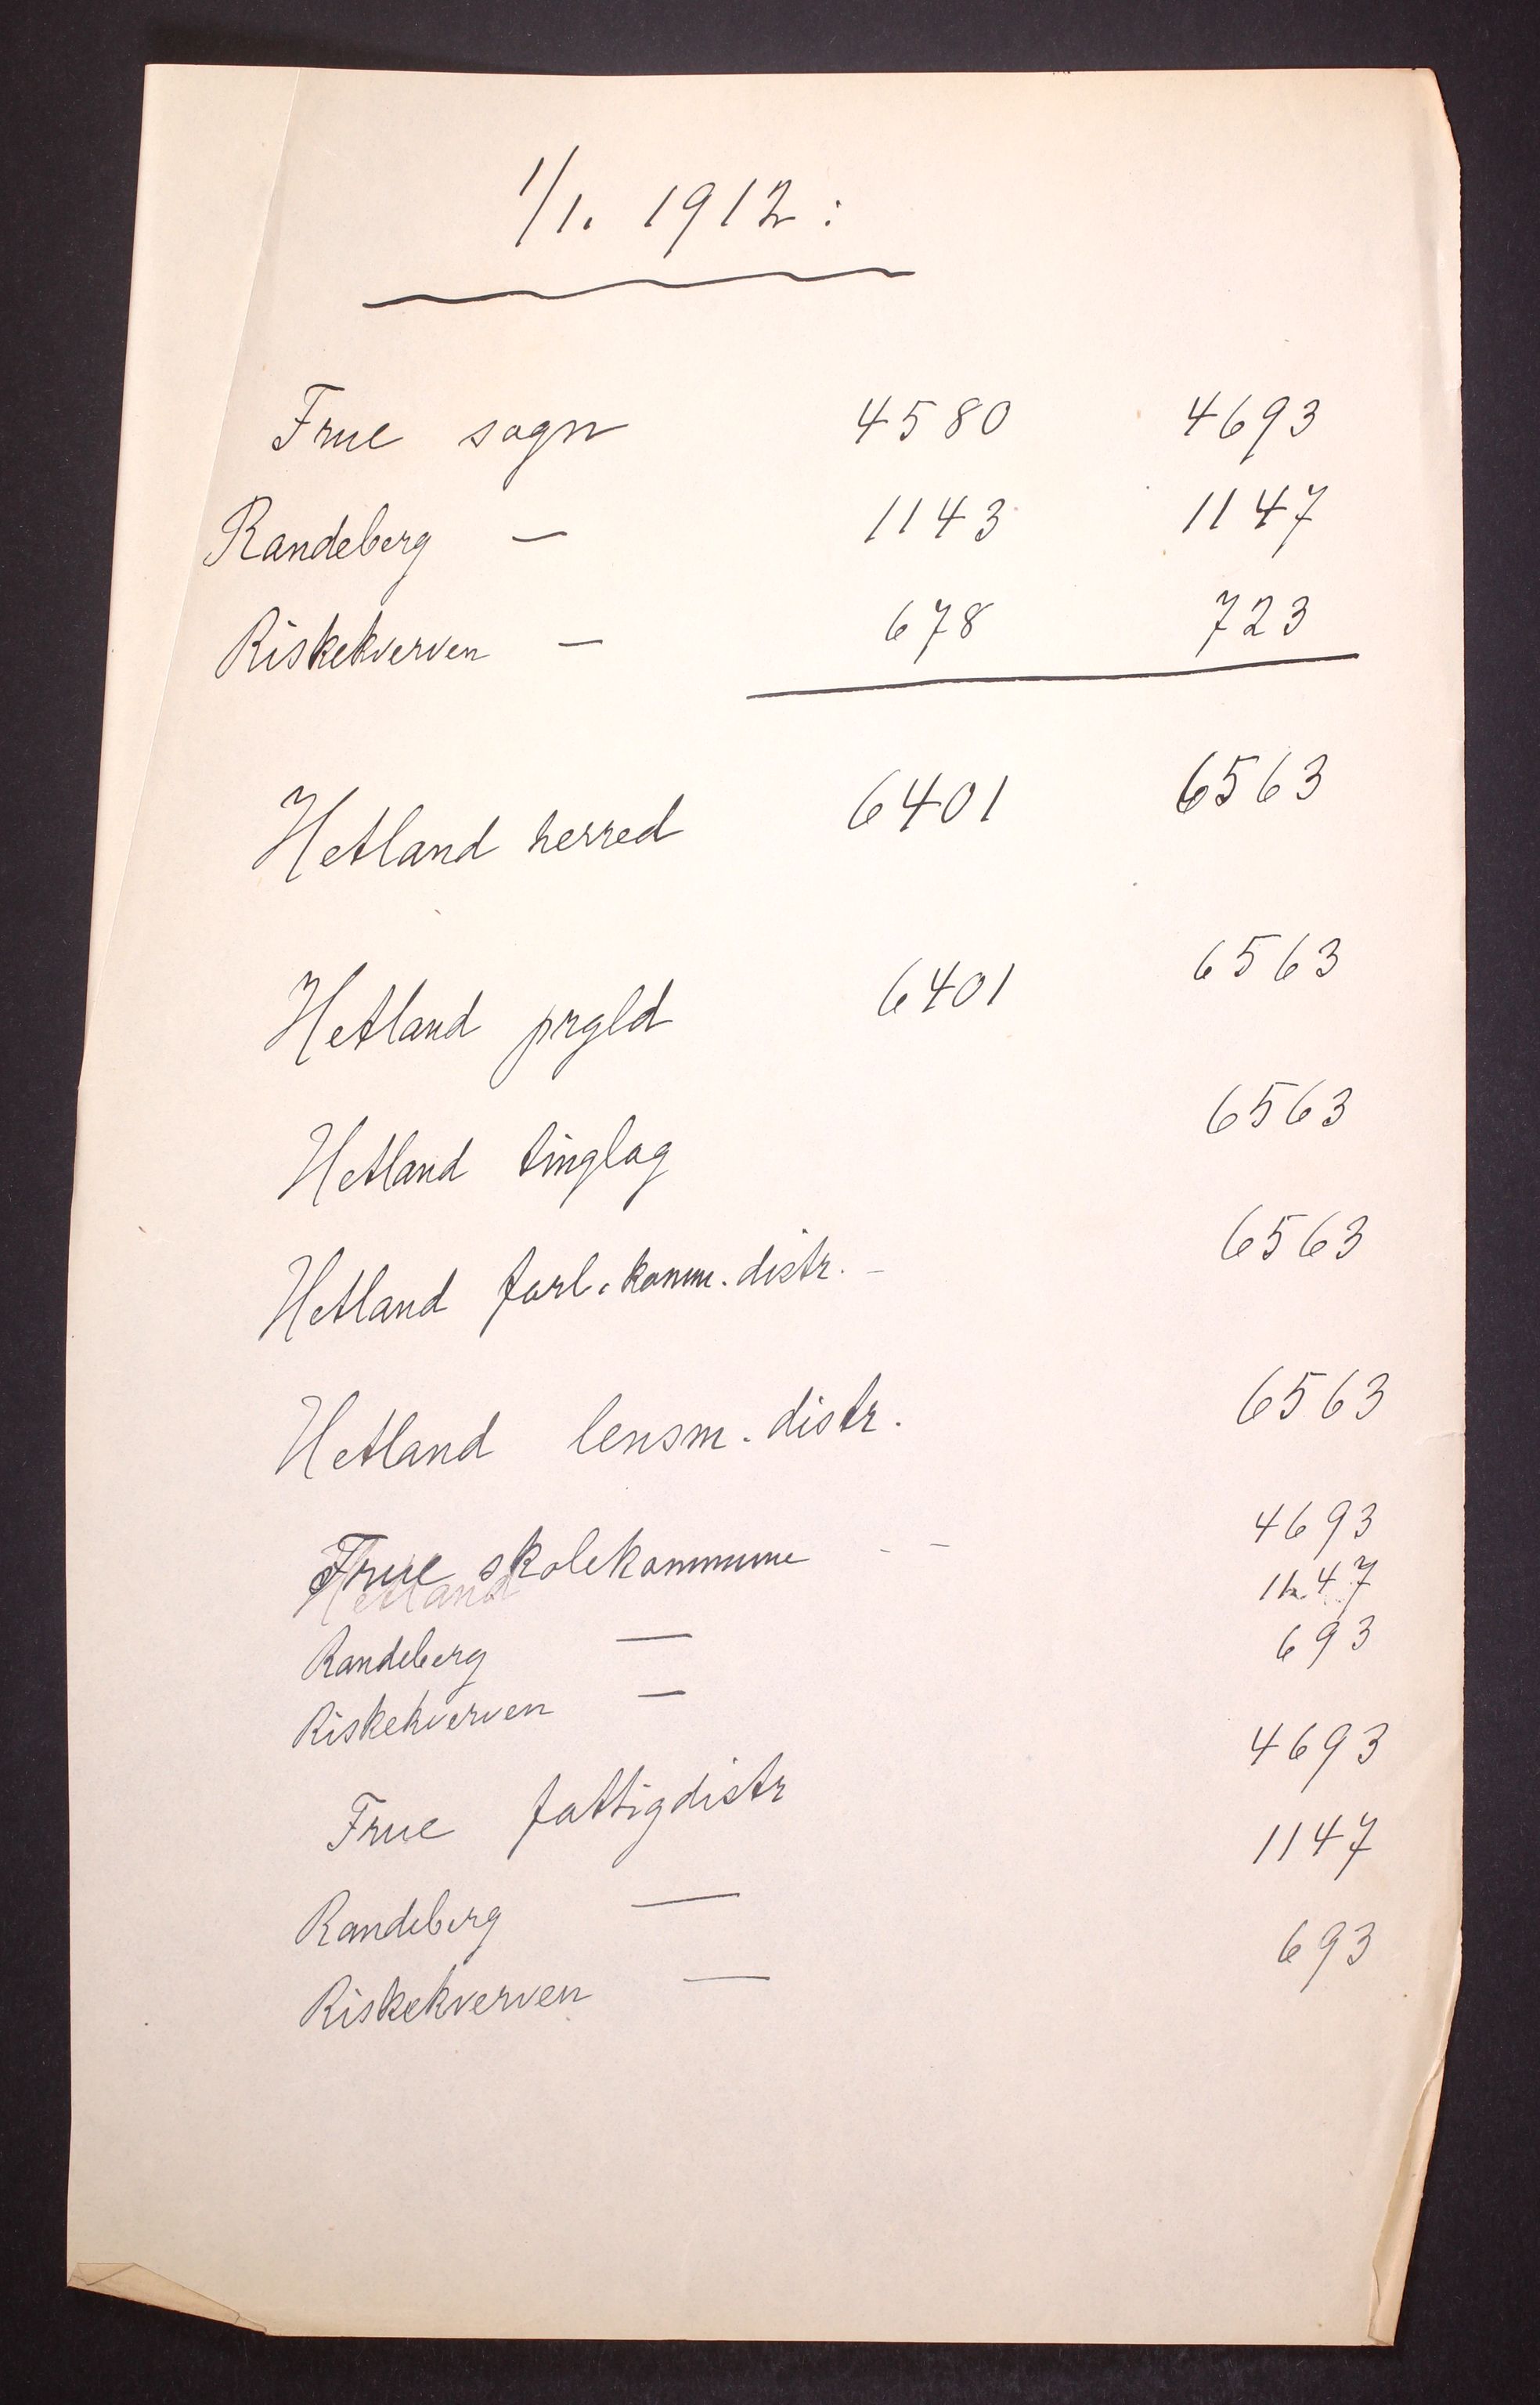 1/1. 1912:
Frue sogn 4580 4693
Randeberg — 1143 1147
Riskekverven — 678 723
Hetland herred 6401 6563
Hetland prgld 6401 6563
Hetland tinglag 6563
Hetland forl.komm.distr. - 6563
Hetland lensm.distr. 6563
Frue skolekommune - - 4693
Hetland
Randeberg — 1147
Riskekverven — 693
Frue fattigdistr 4693
Randeberg — 1147
Riskekverven — 693